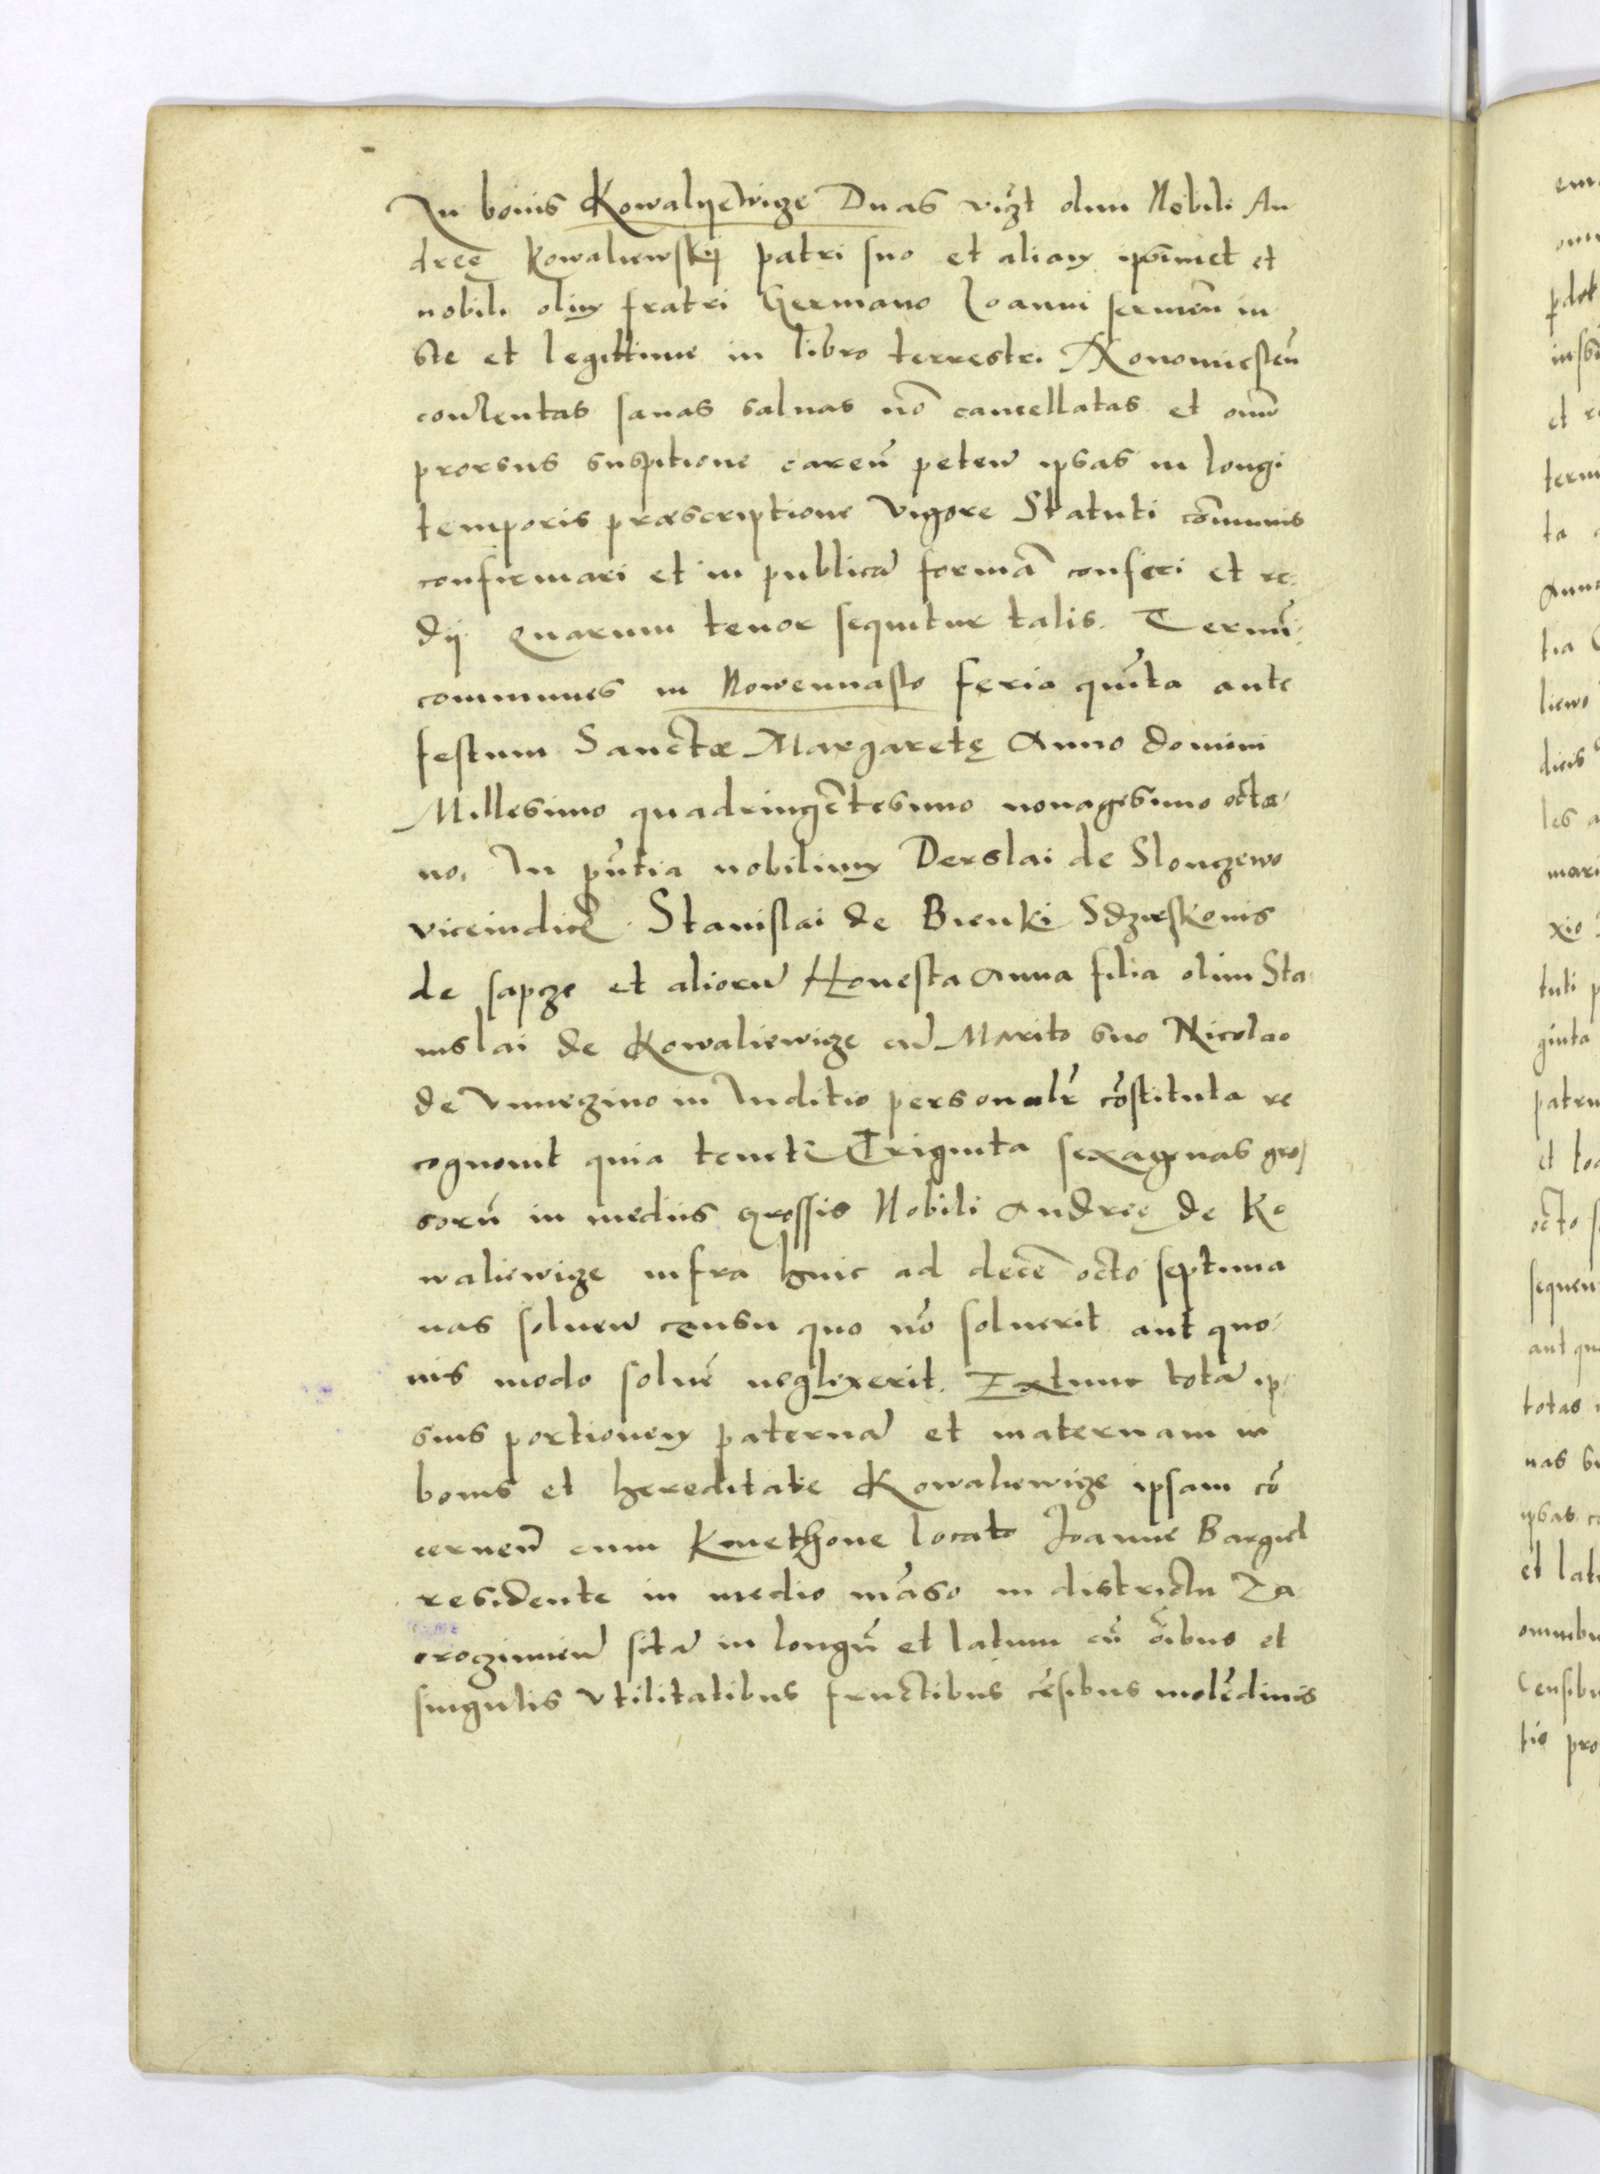 In bonis Kowalyewicze Duas vizt olim Nobili An
dreę Kowaliewskij patri suo et aliam ipsimet et
nobili olim fratri Germano Joanni sermen iu
ste et legittime in libro terrestri
contentas sanas saluas nō cancellatas et omī
prorsus suspitione careñ peteñ ipsas in longi
temporis præscriptione vigore Statuti cōmunis
confirmari et in publicā formā conscri et re
dij Quarum tenor sequitur talis. Termī
communes in Nowemiasto feria quīta ante
festum Sanctæ Margaretę Anno domini
Millesimo quadringētesimo nonagesimo octa
no, In pñtia nobilium Derslai de Slonczewo
viceiudicis Stanislai de Bienki
de sapcze et aliorū Honesta Anna filia olim Sta
nislai de Kowaliewicze cū Marito suo Nicolao
de in Iuditio personalr cōstituta re
cognouit quia tenet Triginta sexagenas gros
sorū in mediis grossis Nobili Andreę de Ko
waliewicze infra hinc ad decē octo septima
nas soluen censu quo nō soluerit aut quo
uis modo solue neglexerit. Extunc totā ip
sius portionem paternā et maternam in
bonis et hereditate Kowaliewicze ipsam cō
cerneñ cum Kmethone locato Joanne Bargiel
residente in medio māso in districtu Za
croczimieñ sitā in longū et latum cū oībus et
singulis vtilitatibus fructibus cēsibus molēdinis